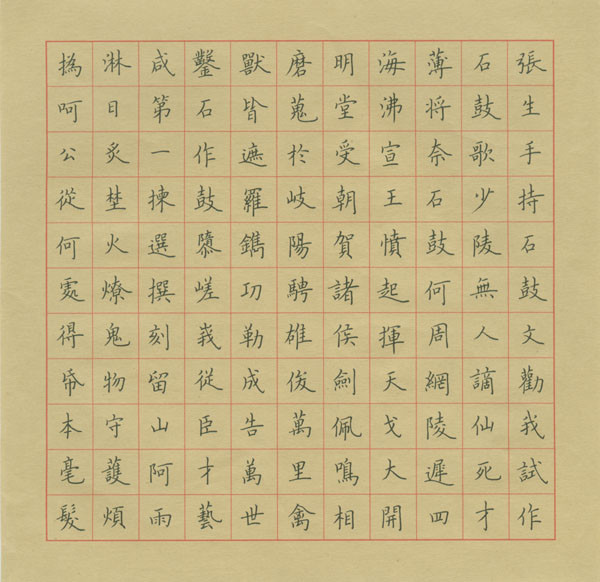 張生手持石鼓文勸我試作
石鼓歌少陵無人謫仙死才
薄将奈石鼓何周綱陵遲四
海沸宣王憤起揮天戈大開
明堂受朝賀諸侯劍佩鳴相
磨蒐於岐陽騁雄俊萬里禽
獸皆遮羅鐫功勒成告萬世
鑿石作鼓隳嵯峩從臣才藝
咸第一揀選撰刻留山阿雨
淋日炙埜火燎鬼物守護煩
撝呵公從何處得帋本毫髮